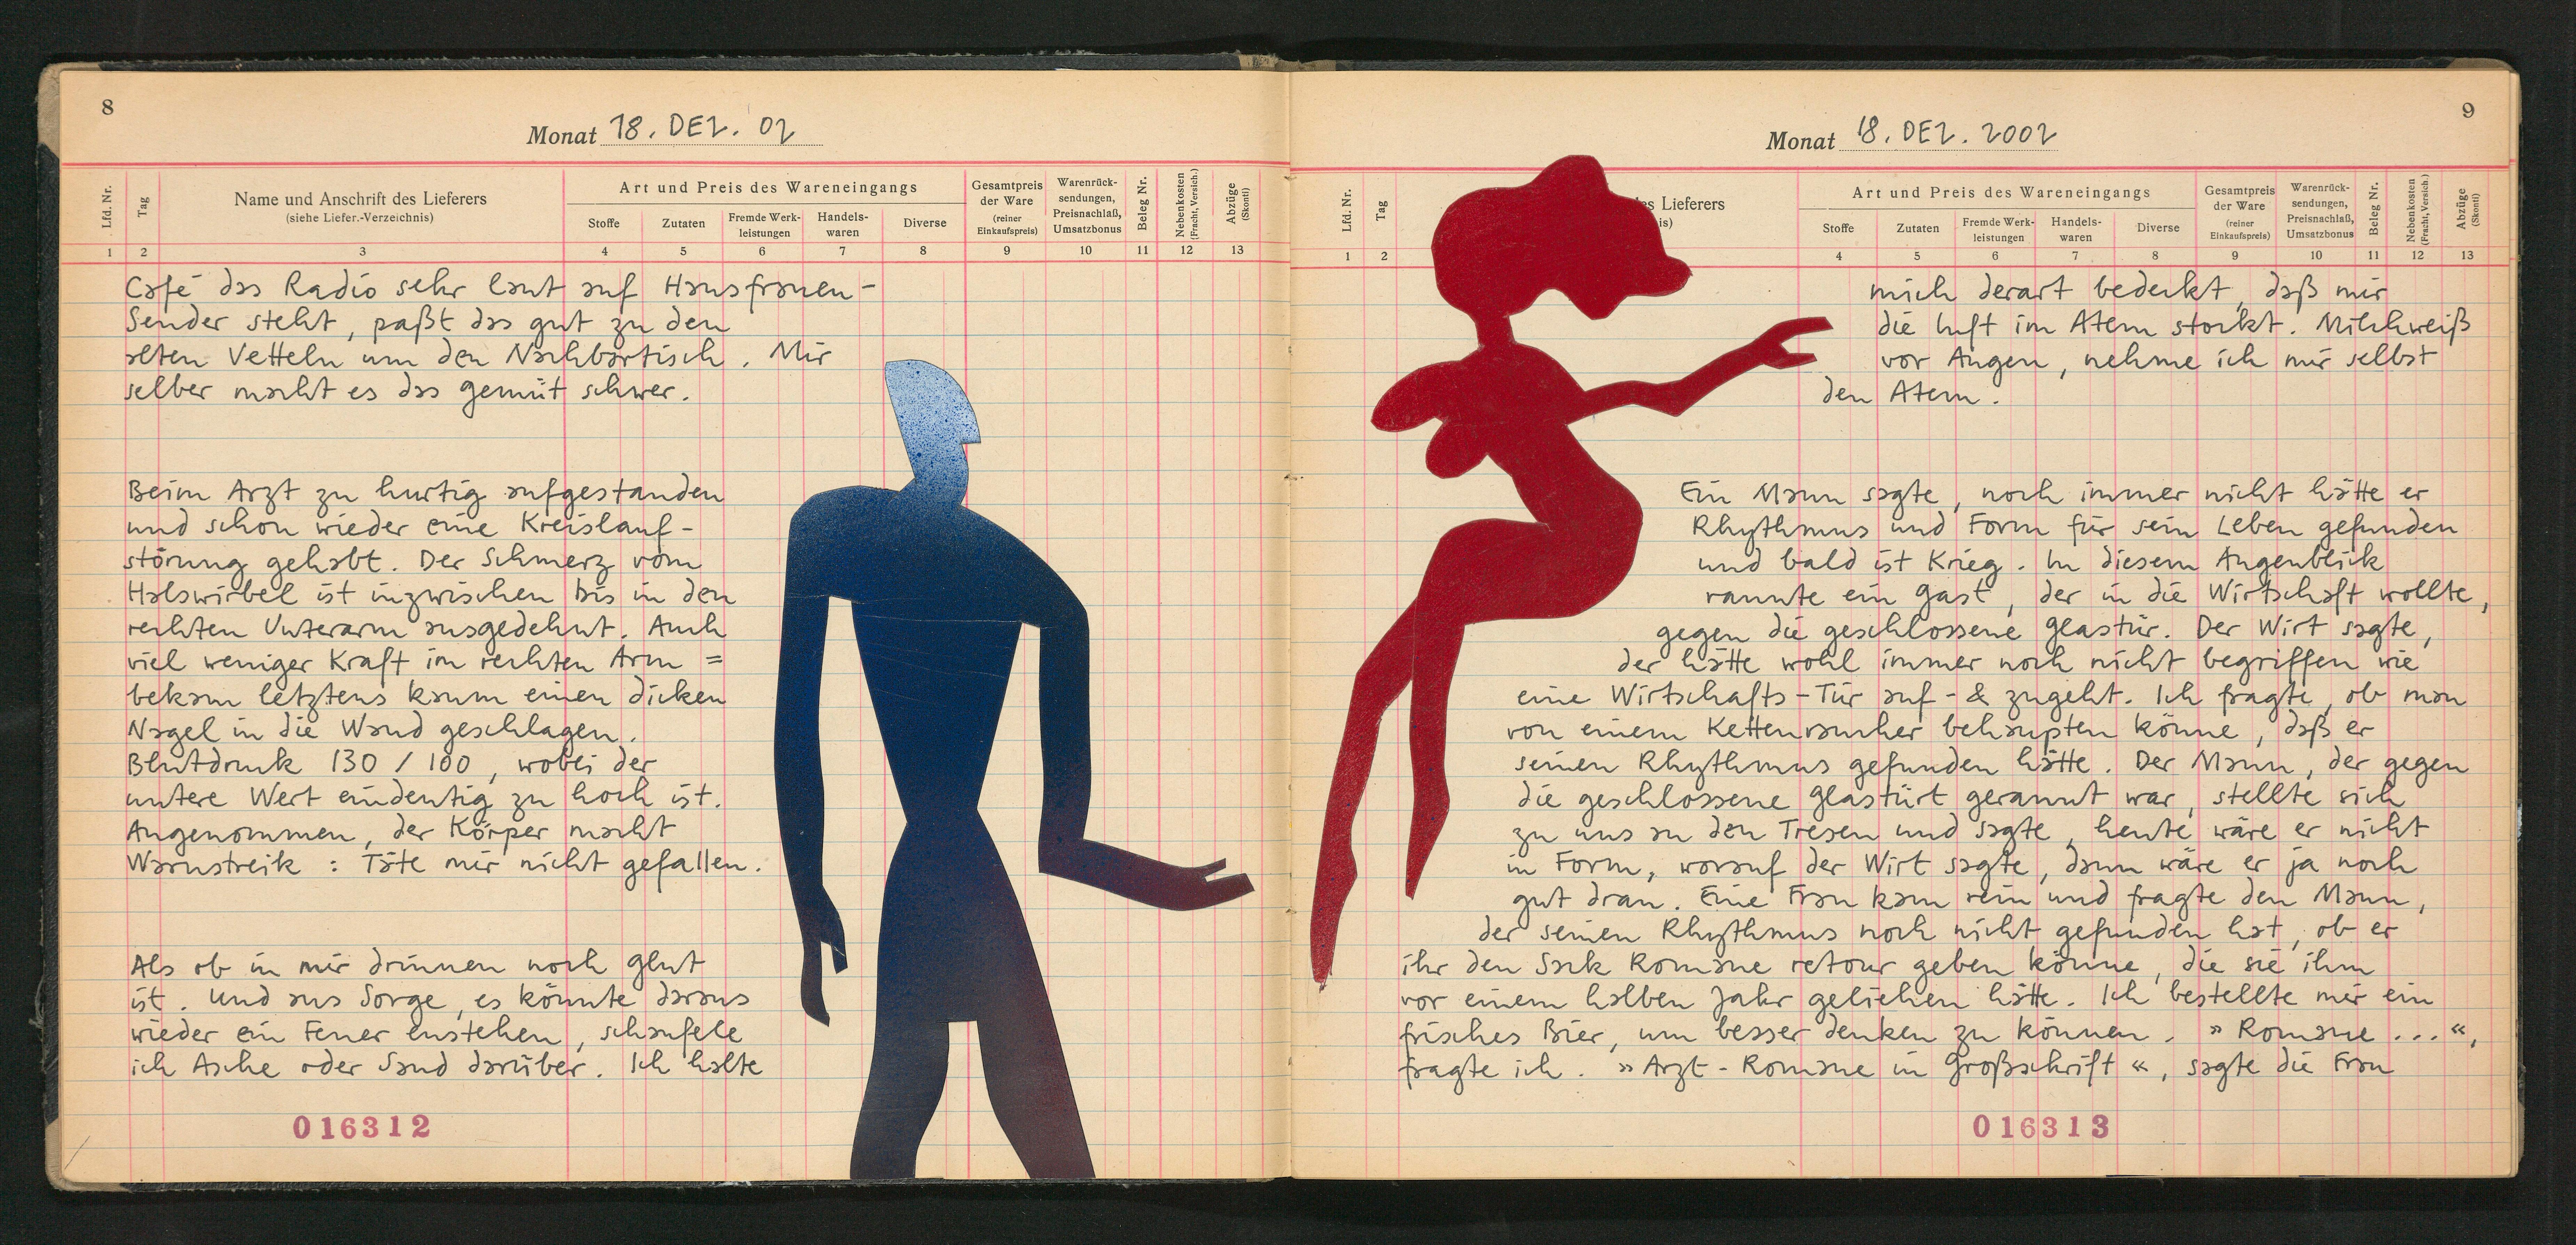 8
Monat 18. DEZ. 02
Lfd. Nr.
Tag
Name und Anschrift des Lieferers
(siehe Liefer.-Verzeichnis)
Art und Preis des Wareneingangs
Stoffe
Zutaten
Fremde Werk-
leistungen
Handels-
waren
Diverse
Gesamtpreis
der Ware
(reiner
Einkaufspreis)
Warenrück-
sendungen,
Preisnachlaß,
Umsatzbonus
Beleg Nr.
Nebenkosten
(Fracht, Versich.)
Abzüge
(Skonti)
1 2 3 4 5 6 7 8 9 10 11 12 13
Café das Radio sehr laut auf Hausfrauen-
Sender steht, paßt das gut zu den
alten Vetteln um den Nachbartisch. Mir
selber macht es das gemüt schwer.
Beim Arzt zu hurtig aufgestanden
und schon wieder eine Kreislauf-
störung gehabt. Der Schmerz vom
Halswirbel ist inzwischen bis in den
rechten Unterarm ausgedehnt. Auch
viel weniger Kraft im rechten Arm =
bekam letztens kaum einen dicken
Nagel in die Wand geschlagen.
Blutdruck 130 / 100, wobei der
untere Wert eindeutig zu hoch ist.
Angenommen, der Körper macht
Warnstreik : Täte mir nicht gefallen.
Als ob in mir drinnen noch glut
ist. Und aus Sorge, es könnte daraus
wieder ein Feuer enstehen, schaufele
ich Asche oder Sand darüber. Ich halte
016312
9
Monat 18. DEZ. 2002
Lfd. Nr.
Tag
es Lieferers
is)
Art und Preis des Wareneingangs
Stoffe
Zutaten
Fremde Werk-
leistungen
Handels-
waren
Diverse
Gesamtpreis
der Ware
(reiner
Einkaufspreis)
Warenrück-
sendungen,
Preisnachlaß,
Umsatzbonus
Beleg Nr.
Nebenkosten
(Fracht, Versich.)
Abzüge
(Skonti)
1 2 4 5 6 7 8 9 10 11 12 13
mich derart bedeckt, daß mir
die luft im Atem stockt. Milchweiß
vor Augen, nehme ich mir selbst
den Atem.
Ein Mann sagte, noch immer nicht hätte er
Rhythmus und Form für sein Leben gefunden
und bald ist Krieg. In diesem Augenblick
rannte ein gast, der in die Wirtschaft wollte,
gegen die geschlossene glastür. Der Wirt sagte,
der hätte wohl immer noch nicht begriffen wie
eine Wirtschafts-Tür auf- & zugeht. Ich fragte, ob man
von einem Kettenraucher behaupten könne, daß er
seinen Rhythmus gefunden hätte. Der Mann, der gegen
die geschlossene glastürt gerannt war, stellte sich
zu uns an den Tresen und sagte, heute wäre er nicht
in Form, worauf der Wirt sagte, dann wäre er ja noch
gut dran. Eine Frau kam rein und fragte den Mann,
der seinen Rhythmus noch nicht gefunden hat, ob er
ihr den Sack Romane retour geben könne, die sie ihm
vor einem halben Jahr geliehen hätte. Ich bestellte mir ein
frisches Bier, um besser denken zu können. »Romane ...«,
fragte ich. »Arzt-Romane in Großschrift«, sagte die Frau
016313